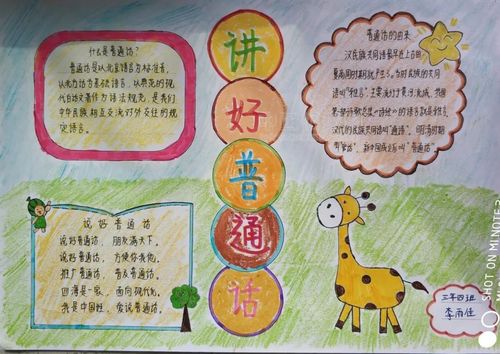 讲
好
普
通
话
什么是普通话?
普通话是以北京语音为标准音,
以北方话为基础语言,以典范的现
代白话文著作为语法规范,是我们
中华民族相互交流对外交往的规
定语言。
普通话的由来
汉民族共同语最早在上古的
夏商周时期就产生了。当时民族的共同
语叫“雅言”,主要流行于黄河流域,我国
第一部诗歌总集《诗经》的语言就是雅言。
汉代的民族共同语叫“通语”,明清时期
叫“官话”,新中国成立后叫“普通话”。
说好普通话
说好普通话,朋友满天下。
说好普通话,方便你我他。
推广普通话,普及普通话。
四海是一家,面向现代化
我是中国娃,爱说普通话。
三年四班
李雨佳
SHOT ON MI NOTE 3